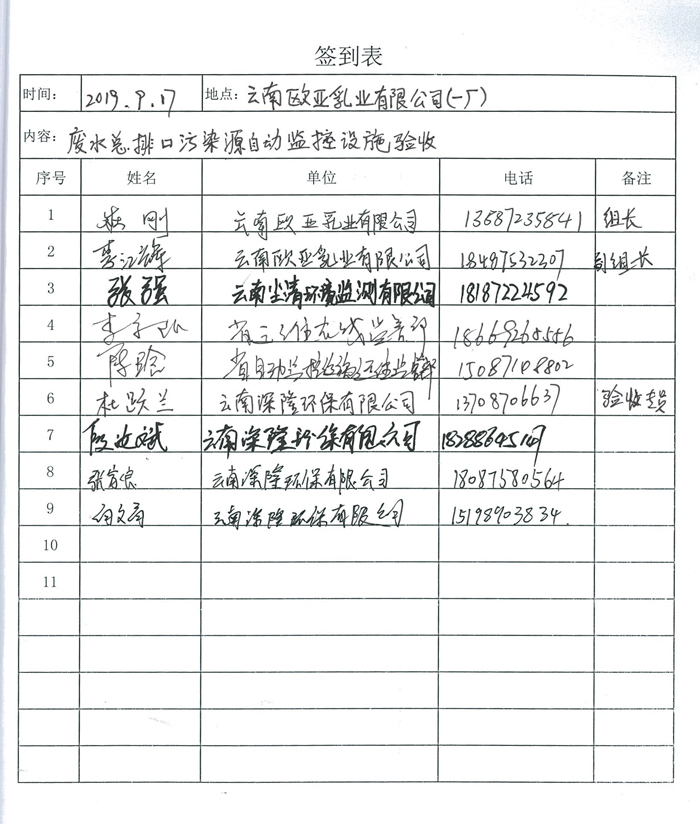 签到表
时间： 2019.9.17 地点：云南欧亚乳业有限公司(一厂)
内容：废水总排口污染源自动监控设施验收
序号 姓名 单位 电话 备注
1 刚 云南欧亚乳业有限公司 13687235841 组长
2 李江 云南欧亚乳业有限公司 18497532307 副组长
3 张强 云南尘清环境监测有限公司 18187224592
4 李 18669265556
5 陈 省自动 15087108802
6 杜跃兰 云南深隆环保有限公司 13708706637 验收专员
7 段 云南深隆环保有限公司
8 张 云南深隆环保有限公司 18087580564
9 云南深隆环保有限公司 15198903834.
10
11